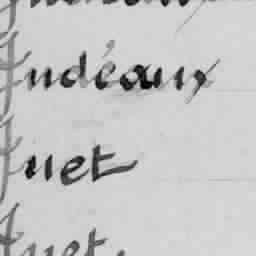 Judéaux
Juet
Juet.